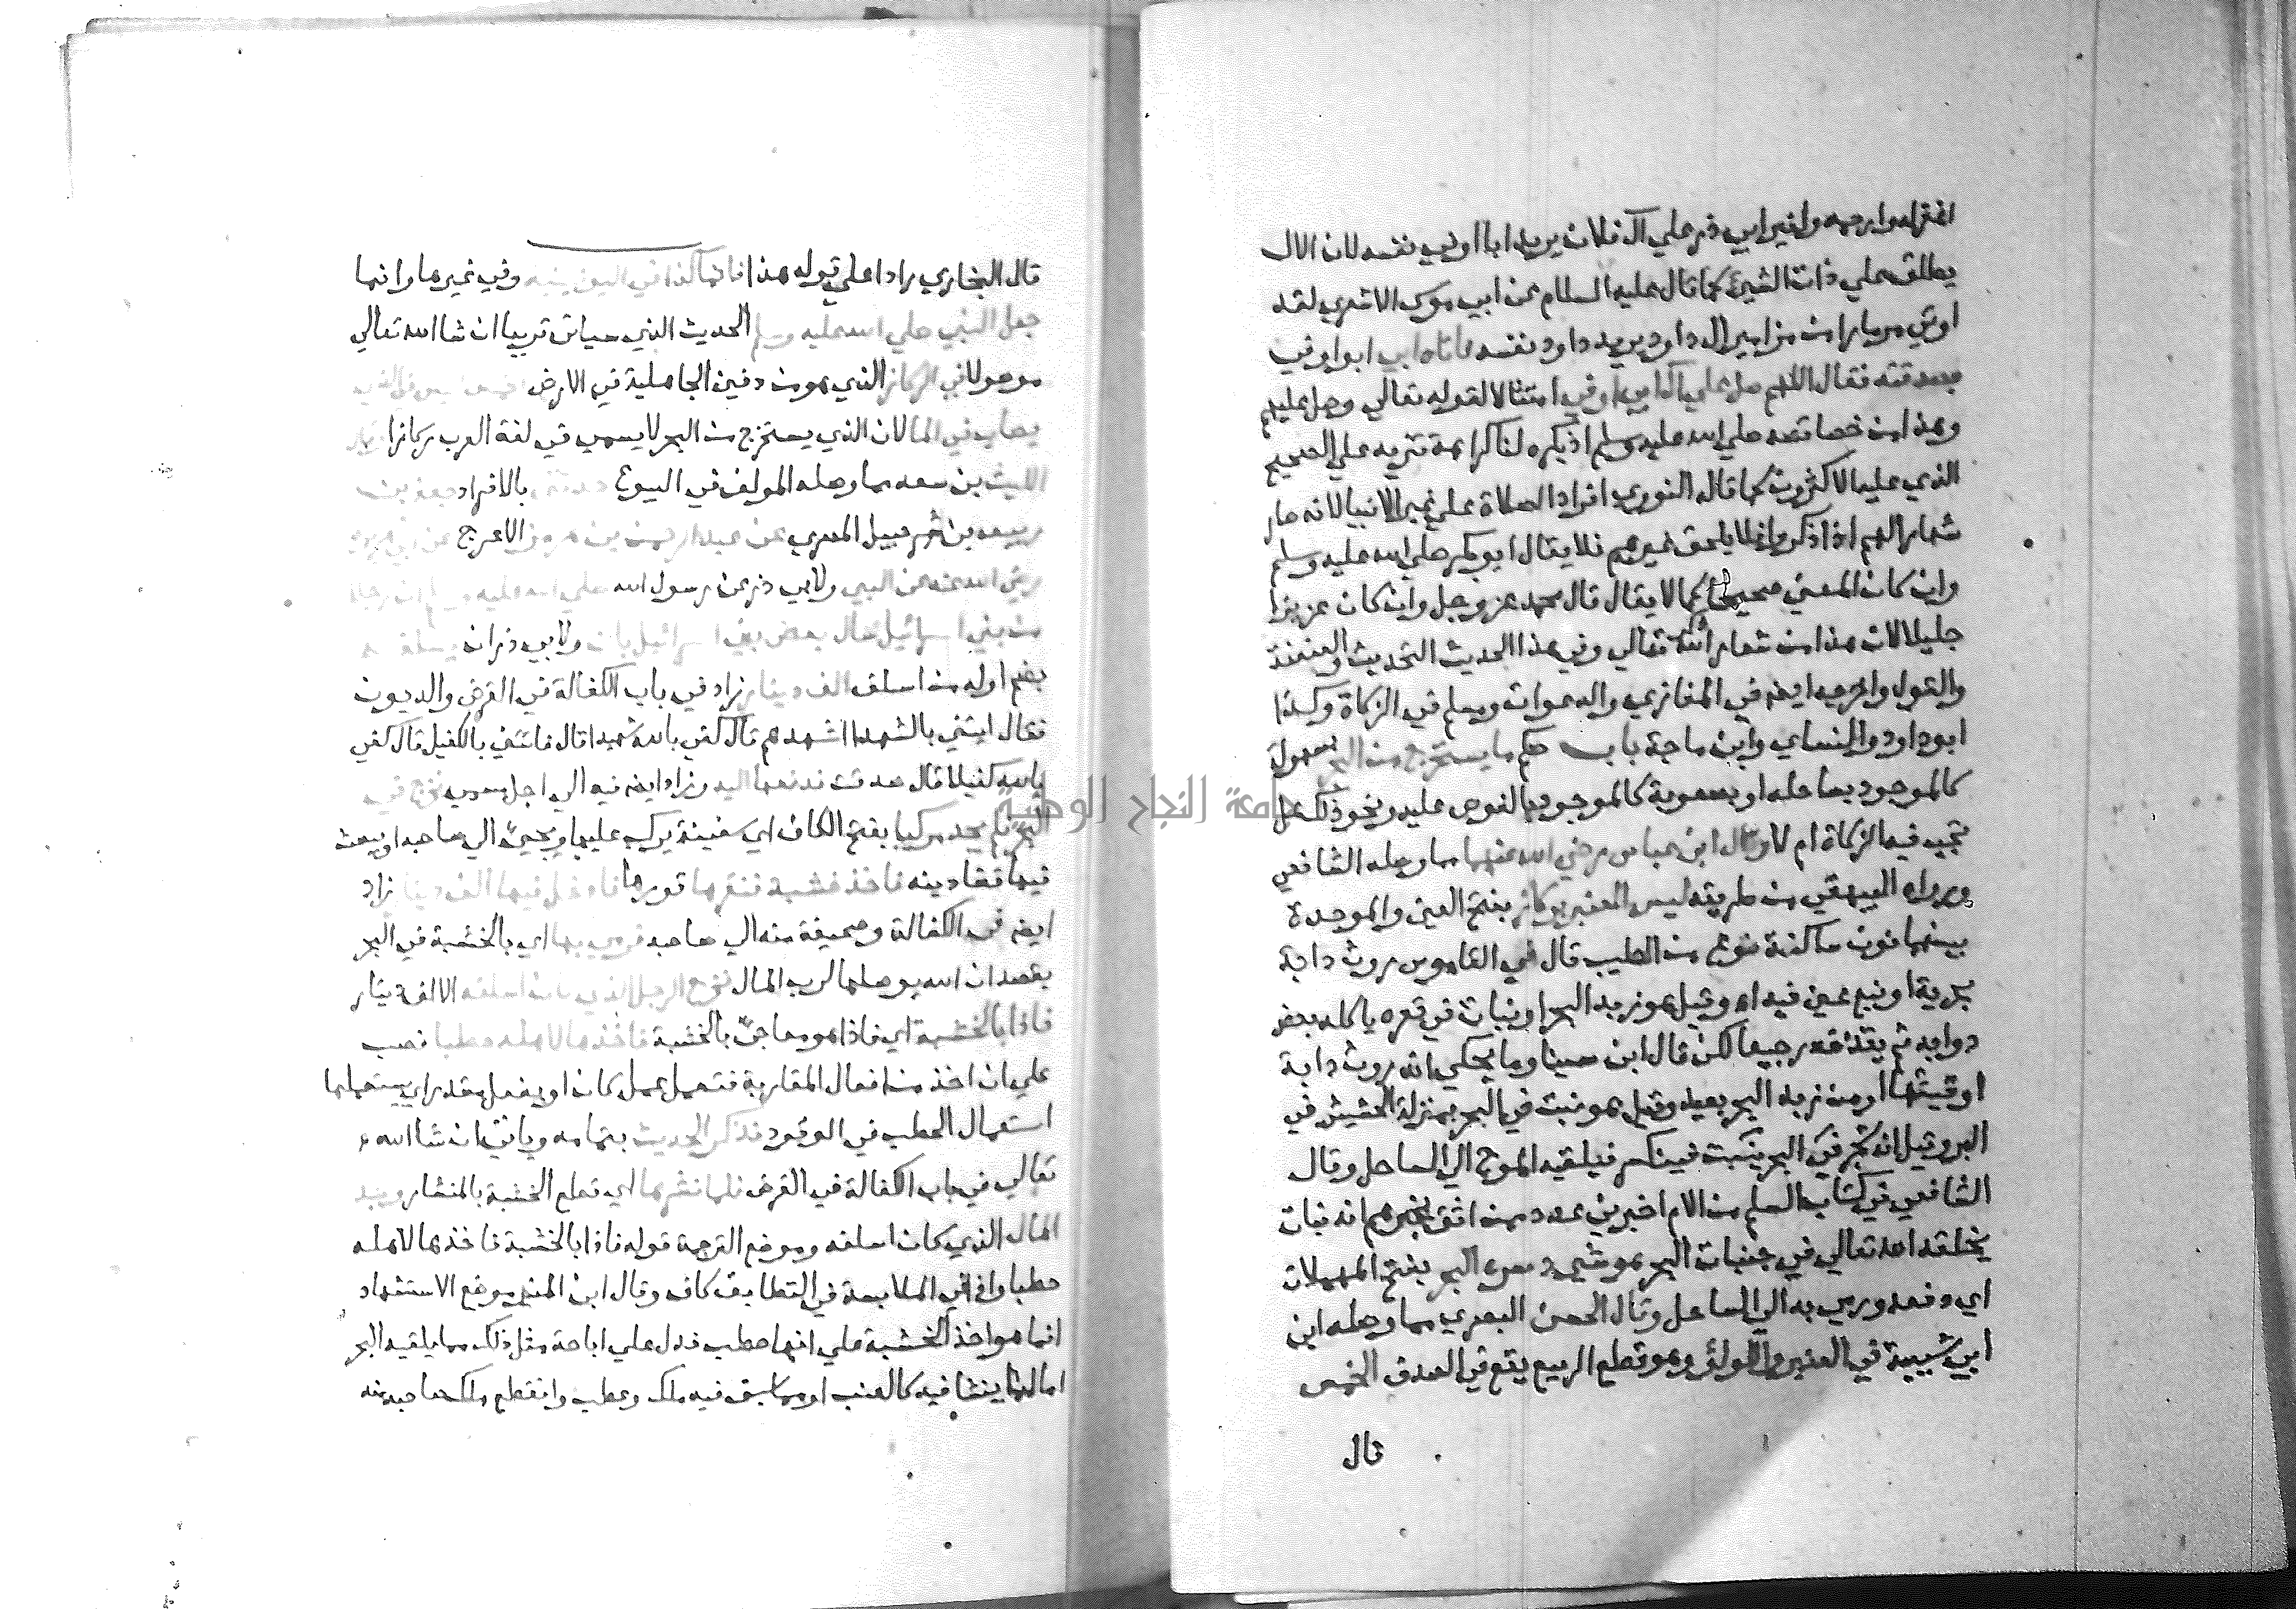 اغفر له وارحمه ولغير ابي ذر علي آل فلان يريد ابا اوفي نفسه لان الال
يطلق علي ذات الشيء كما قال عليه السلام عن ابي موسي الاشعري لقد
اوتي مزمارا من مزامير ال داود يريد داود نفسه فاتاه ابي ابو اوفي
بصدقته فقال اللهم صل علي آل ابي اوفي امتثالا لقوله تعالي وصل عليهم
وهذا من خصائصه صلي الله عليه وسلم اذ يكره لنا كراهة تنزيه علي الصحيح
الذي عليه الاكثرون كما قاله النووي افراد الصلاة علي غير الانبيا لانه صار
شعارا لهم اذا ذكروا فلا يلحق غيرهم فلا يقال ابو بكر صلي الله عليه وسلم
وان كان المعني صحيحا كما لا يقال قال محمد عز وجل وان كان عزيزا
جليلا لان هذا من شعار الله تعالي وفي هذا الحديث التحديث والعنعنة
والقول واخرجه ايضا في المغازي والدعوات ومسلم في الزكاة وكذا
ابو داود والنساي وابن ماجة باب حكم ما يستخرج من البحر بسهولة
كالموجود بساحله او بصعوبة كالموجود بالغوص عليه ونحو ذلك هل
تجب فيه الزكاة ام لا وقال ابن عباس رضي الله عنهما مما وصله الشافعي
ورواه البيهقي من طريقه ليس العنبر بركاز بفتح العين والموحدة
بينهما نون ساكنة نوع من الطيب قال في القاموس روث دابة
بحرية او نبع عين فيه اه وقيل هو زبد البحر او نبات في قعره ياكله بعض
دوابه ثم يقذفه رجيعا لكن قال ابن سينا وما يحكي انه روث دابة
او قيئها او من زبد البحر بعيد وقيل هو نبت في البحر بمنزلة الحشيش في
البر وقيل انه شجر في البحر ينبت فينكسر فيلقيه الموج الي الساحل وقال
الشافعي في كتاب السلم من الام اخبرني عدد ممن اثق بخبرهم انه نبات
يخلقه الله تعالي في جنبات البحر هو شي دسره البحر بفتح المهملات
اي دفعه ورمي به الي الساحل وقال الحسن البصري مما وصله ابن
ابي شيبة في العنبر واللولؤ وهو قطع الربيع يقع في الصدف الخمس
قال
قال البخاري رادا علي قوله هذا فانما كذا في اليونينية وفي غيرها وانما
جعل النبي صلي الله عليه وسلم الحديث الذي سياتي قريبا ان شا الله تعالي
موصولا في الركاز الذي هو من دفين الجاهلية في الارض الخمس ليس في الذي
يصاب في الما لان الذي يستخرج من البحر لا يسمي في لغة العرب ركازا وقال
الليث بن سعد مما وصله المولف في البيوع حدثني بالافراد جعفر بن
ربيعة بن شرحبيل المصري عن عبد الرحمن بن هرمز الاعرج عن ابي هريرة
رضي الله عنه عن النبي ولابي ذر عن رسول الله صلي الله عليه وسلم ان رجلا
من بني اسرائيل سال بعض بني اسرائيل بان ولابي ذر ان يسلفه
بضم اوله من اسلف الف دينار زاد في باب الكفالة في القرض والديون
فقال ايتني بالشهدا اشهدهم قال كفي بالله شهيدا قال فاتني بالكفيل قال كفي
بالله كفيلا قال صدقت فدفعها اليه وزاد ايضا فيه الي اجل مسمي فخرج في
البحر فلم يجد مركبا بفتح الكاف اي سفينة يركب عليها ويجيء الي صاحبه او يبعث
فيها قضا دينه فاخذ خشبة فنقرها قورها فادخل فيها الف دينار زاد
ايضا في الكفالة وصحيفة منه الي صاحبه فرمي بها اي بالخشبة في البحر
بقصد ان الله يوصلها لرب المال فخرج الرجل الذي كان اسلفه الالف دينار
فاذا بالخشبة اي فاذا هو مفاجئ بالخشبة فاخذها لاهله حطبا نصب
علي ان اخذ من افعال المقاربة فتعمل عمل كان او بفعل مقدر اي يستعملها
استعمال الحطب في الوقود فذكر الحديث بتمامه وياتي ان شا الله
تعالي في باب الكفالة في القرض فلما نشرها اي قطع الخشبة بالمنشار وجد
المال الذي كان اسلفه وموضع الترجمة قوله فاذا بالخشبة فاخذها لاهله
حطبا وادني الملابسة في التطابق كاف وقال ابن المنير موضع الاستشهاد
انما هو اخذ الخشبة علي انها حطب فدل علي اباحة مثل ذلك مما يلقيه البحر
اما مما ينشا فيه كالعنبر او مما سبق فيه ملك وعطب وانقطع ملك صاحبه منه
جامعة النجاح الوطنية